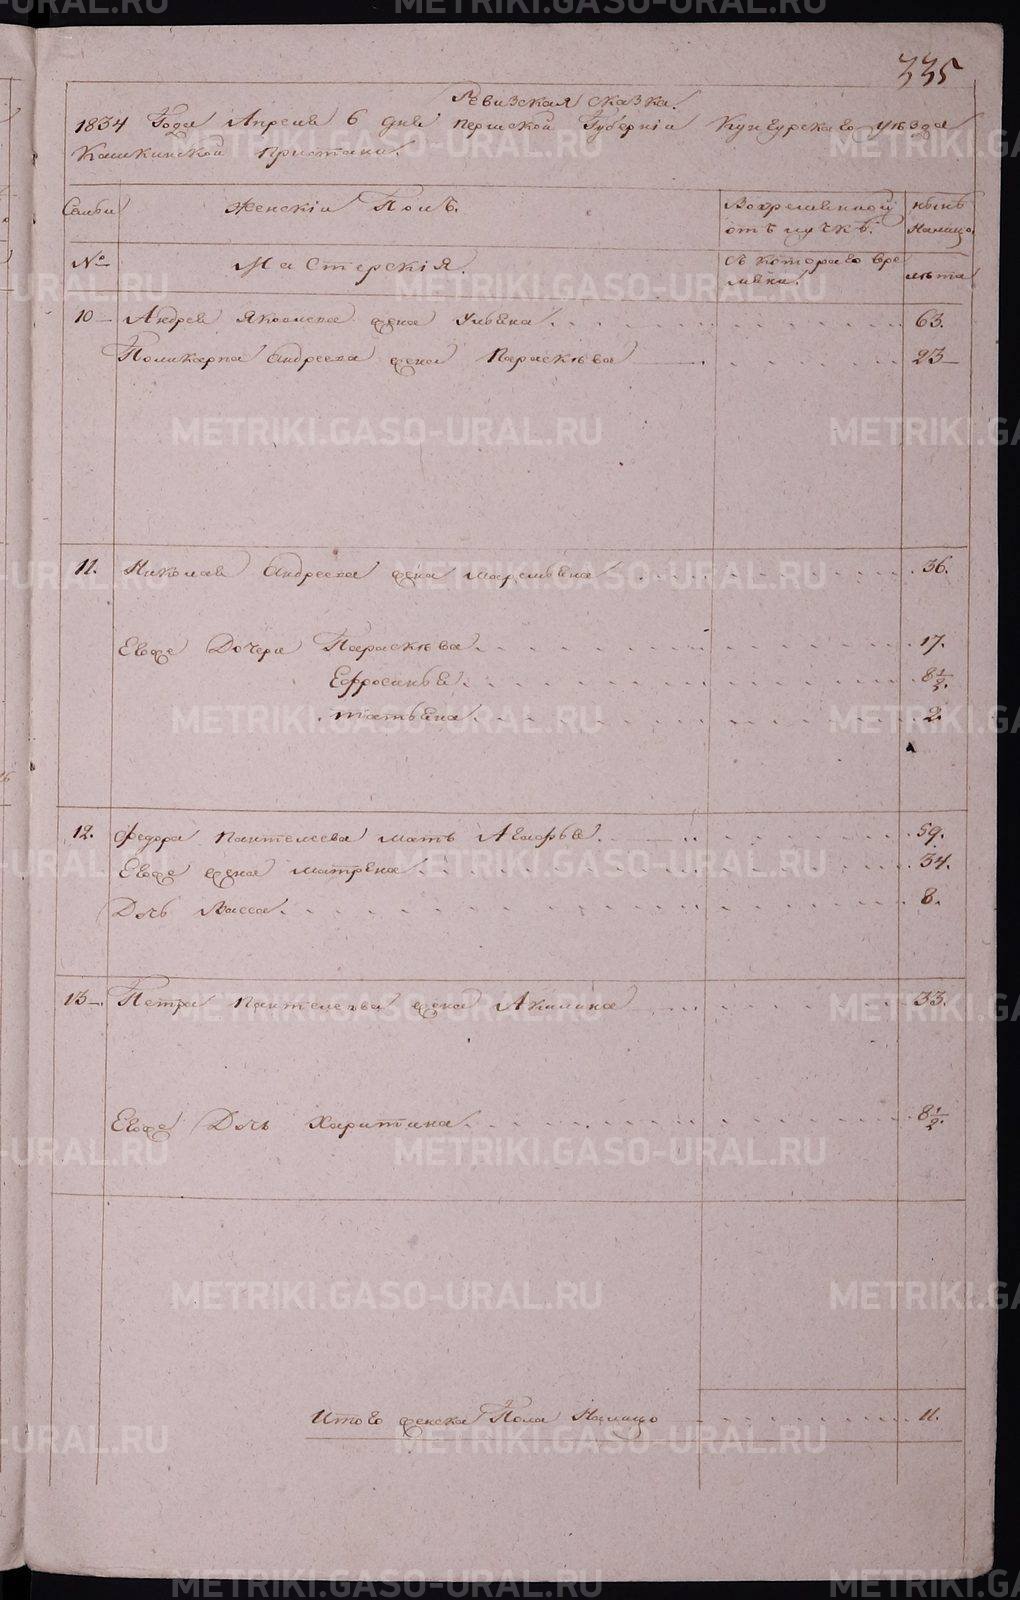 335
Ревизская сказка.
1834 Года Апреля 6 дня Пермской Губернiи Кунгурскаго уѣзда
Кашкинской Пристани.
Семьи Женскiй Полъ. Вовременной отълучкѣ. нынѣ Налицо.
№ Мастерскiя. Съ котораго времени. лѣта
10 Андрея Яковлева жена Ульяна 63.
Поликарпа Андреева жена Параскѣва 23
11. Николая Андреева жена Маремьяна 36.
Евоже Дочери Параскѣва 17.
Ефросинья 8 1/2.
татьяна 2.
12. Федора Пантелеева мать Агафья 59.
Евоже жена матрена 34.
Дочь Васса 8.
13 Петра Пантелеева жена Акилина 33.
Евоже Дочь Харитина 8 1/2.
Итого женска Пола Налицо 11.
METRIKI.GASO-URAL.RU